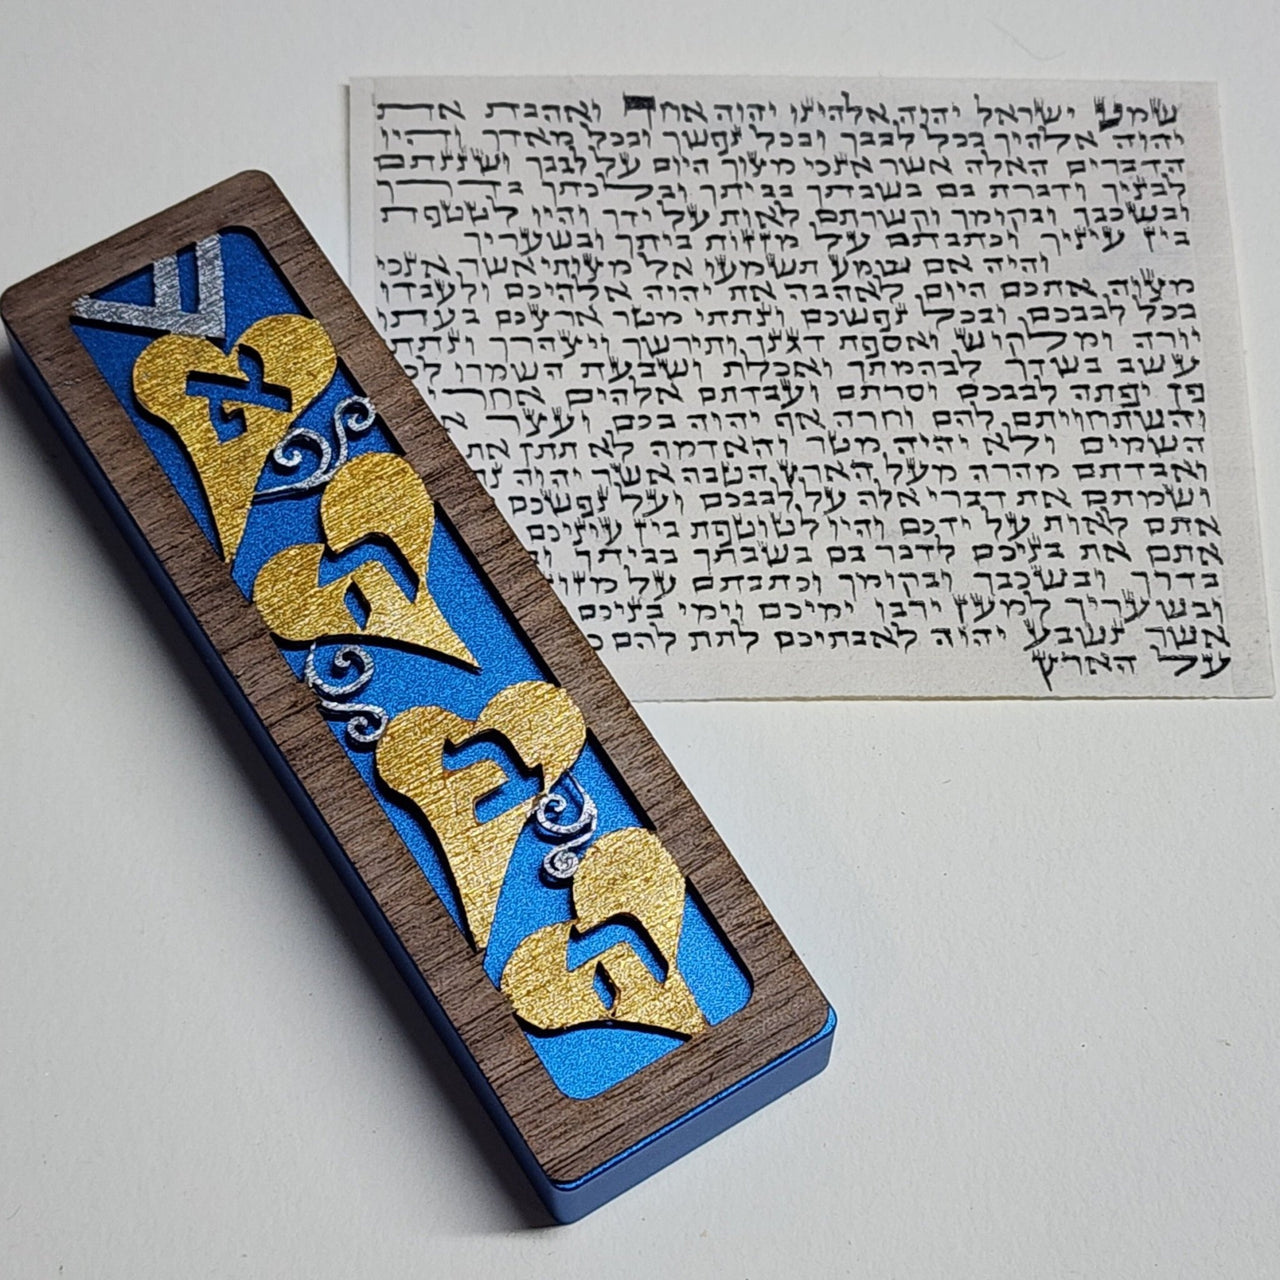 שמע ישראל יהוה אלהינו יהוה אחד ואהבת את
יהוה אלהיך בכל לבבך ובכל נפשך ובכל מאדך והיו
הדברים האלה אשר אנכי מצוך היום על לבבך ושננתם
לבניך ודברת בם בשבתך בביתך ובלכתך בדרך
ובשכבך ובקומך וקשרתם לאות על ידך והיו לטטפת
בין עיניך וכתבתם על מזזות ביתך ובשעריך
והיה אם שמע תשמעו אל מצותי אשר אנכי
מצוה אתכם היום לאהבה את יהוה אלהיכם ולעבדו
בכל לבבכם ובכל נפשכם ונתתי מטר ארצכם בעתו
יורה ומלקוש ואספת דגנך ותירשך ויצהרך
עשב בשדך לבהמתך ואכלת ושבעת השמרו
פן יפתה לבבכם וסרתם ועבדתם אלהים
והשתחויתם להם וחרה אף יהוה בכם ועצר
השמים ולא יהיה מטר והאדמה לא תתן את
ואבדתם מהרה מעל הארץ הטבה אשר יהוה
ושמתם את דברי אלה על לבבכם ועל נפשכם
אתם לאות על ידכם והיו לטוטפת בין עיניכם
אתם את בניכם לדבר בם בשבתך בביתך
בדרך ובשכבך ובקומך וכתבתם על
ובשעריך למען ירבו ימיכם וימי בניכם
אשר נשבע יהוה לאבתיכם לתת להם
על הארץ
ש
אהבה